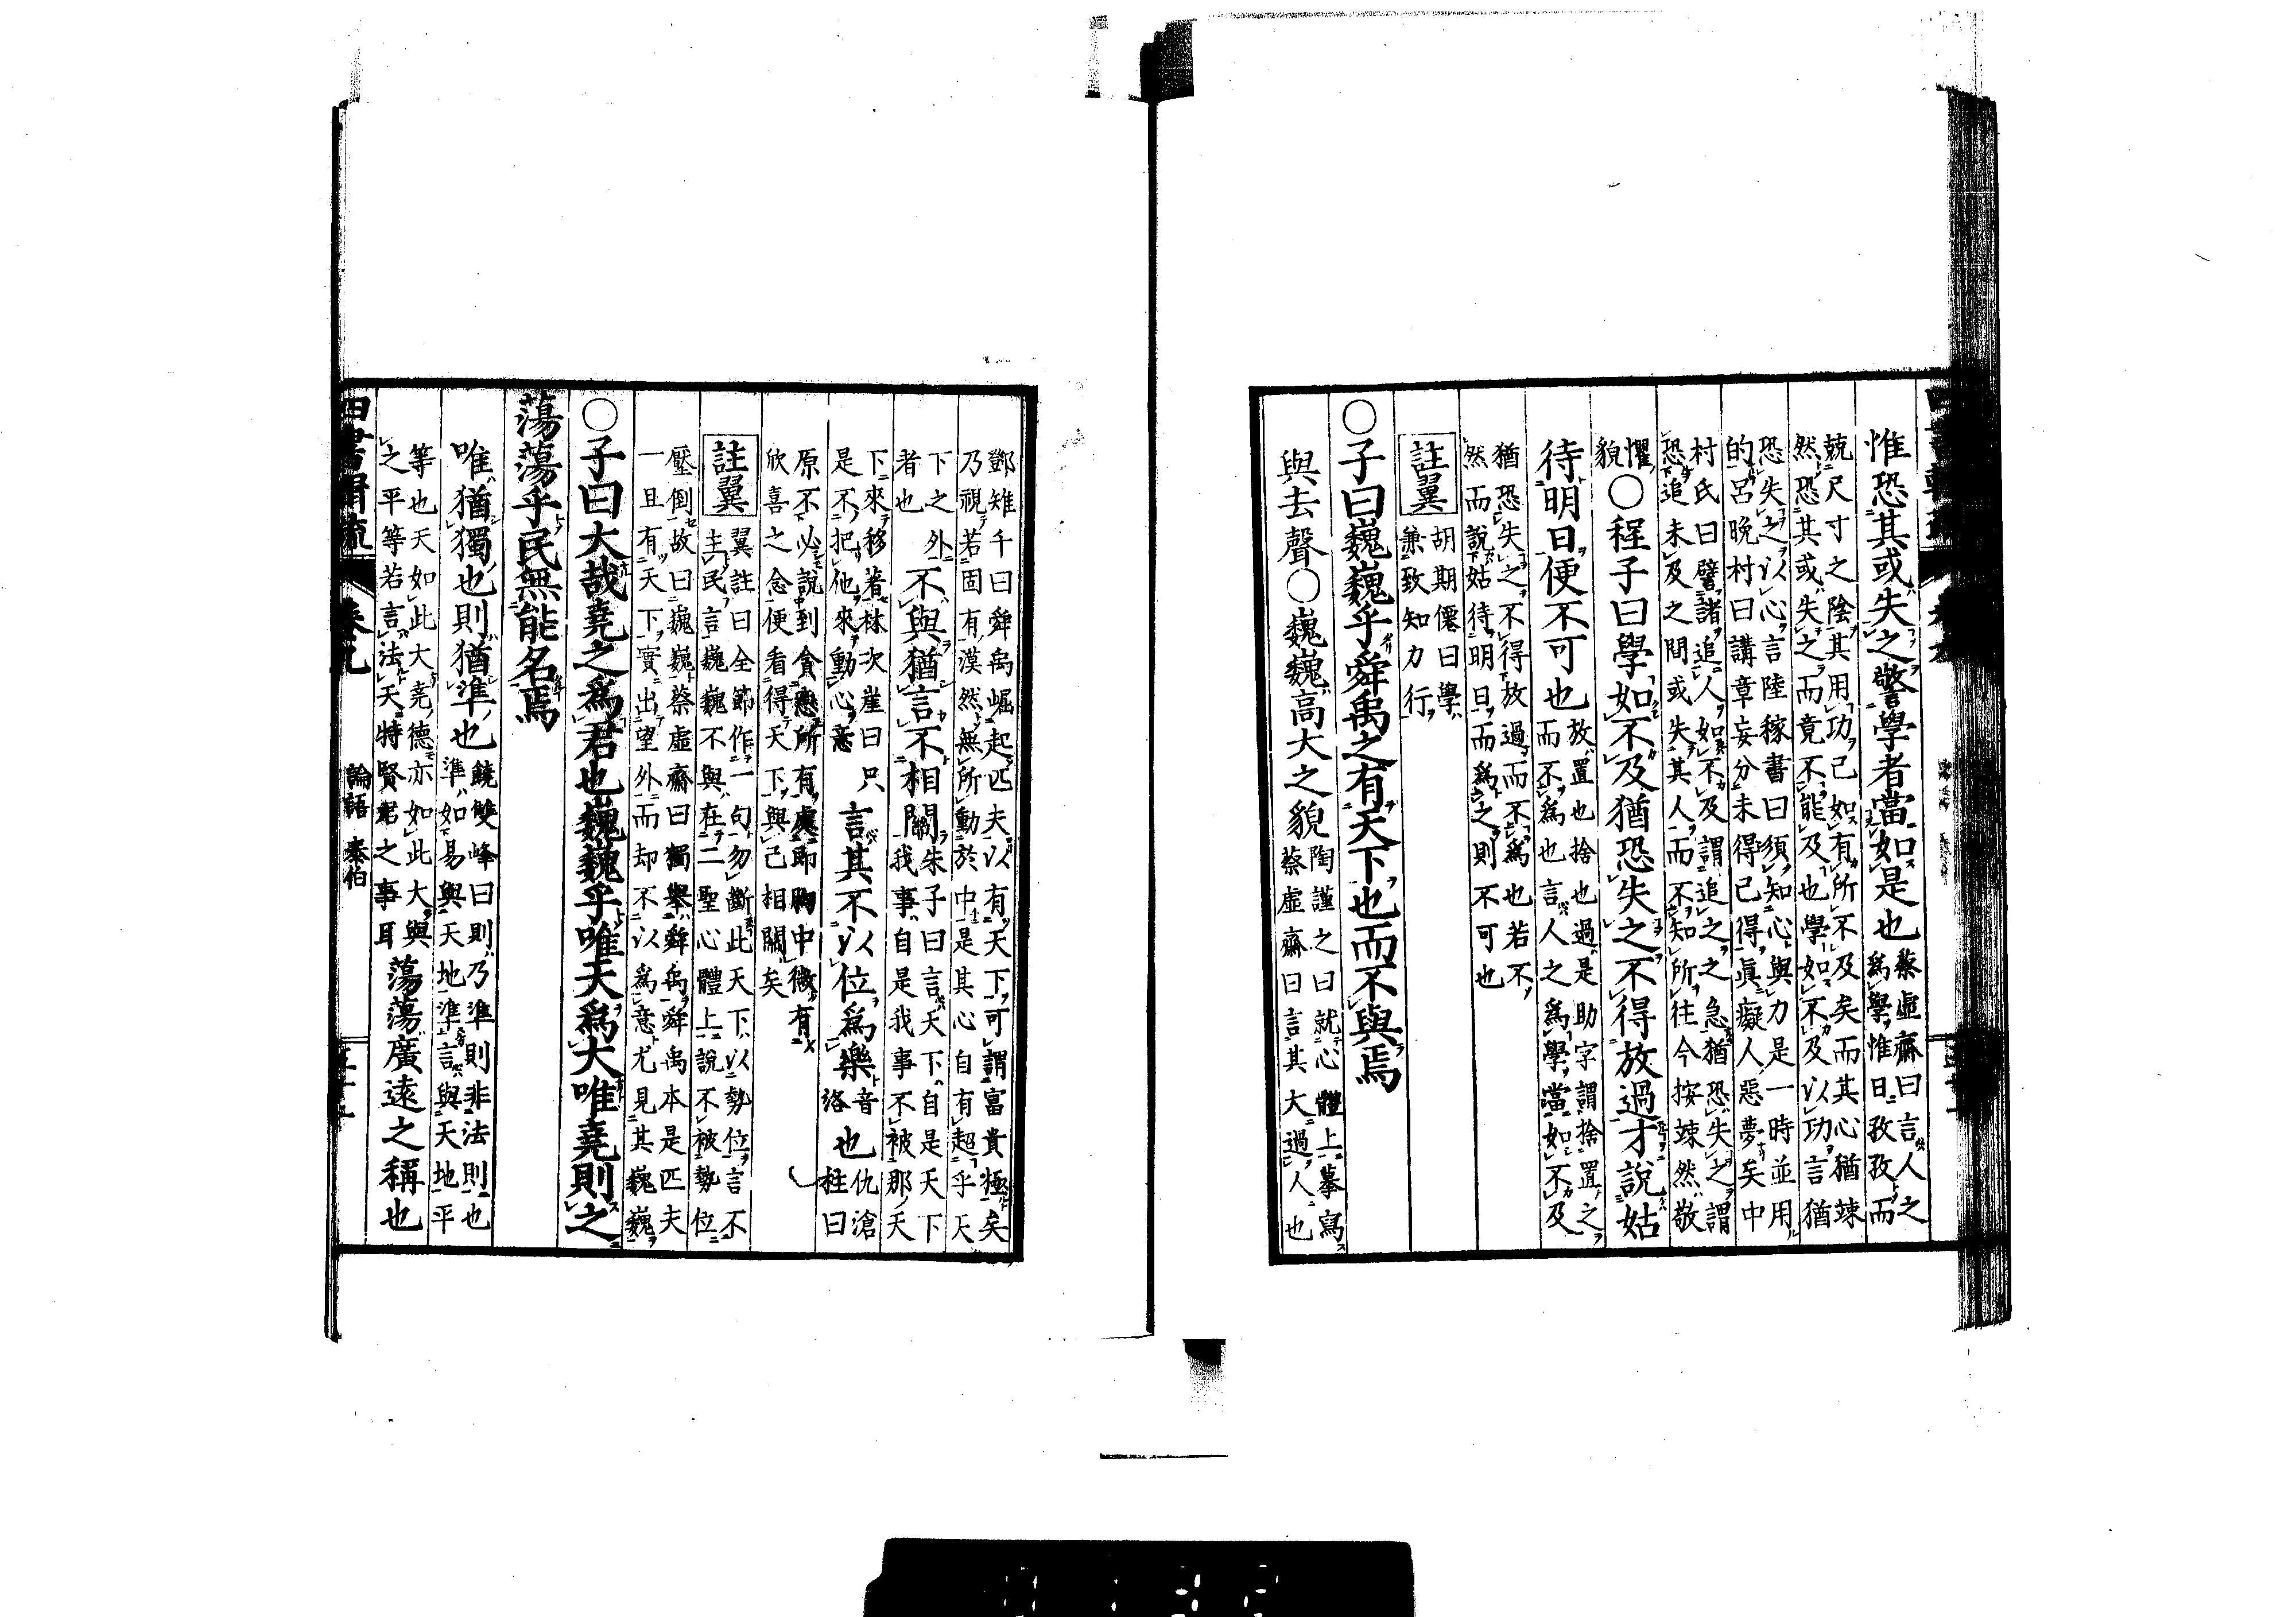 惟恐其或失之警學者當如是也蔡虛齋曰言人之
爲學惟日孜孜而
兢尺寸之陰其用功已如有所不及矣而其心猶竦
然恐其或失之而竟不能及也學如不及以功言猶
恐失之以心言陸稼書曰須知心與力是一時並用
的呂晚村曰講章妄分未得己得眞癡人惡夢矣中
村氏曰譬諸追人如不及謂追之之急猶恐失之謂
恐追未及之間或失其人而不知所往今按竦然敬
懼
貌
○程子曰學如不及猶恐失之不得放過才說姑
待明日便不可也放置也捨也過是助字謂捨置之
而不爲也言人之爲學當如不及
猶恐失之不得放過而不爲也若不
然而說姑待明日而爲之則不可也
註翼
胡期僊曰學
兼致知力行
○子曰巍巍乎舜禹之有天下也而不與焉
與去聲○巍巍高大之貌陶謹之曰就心體上摹寫
蔡虛齋曰言其大過人也
鄧雉千曰舜禹崛起匹夫以有天下可謂富貴極矣
乃視若固有漠然無所動於中是其心自有超乎天
下之外
者也
不與猶言不相關朱子曰言天下自是天下
我事自是我事不被那天
下來移著林次崖曰只
是不把他來動心意
言其不以位爲樂音
洛也仇滄
柱曰
原不必說到貪戀所有處即胸中微有
欣喜之念便看得天下與己相關矣
註翼
翼註曰全節作一句勿斷此天下以勢位言不
主民言巍巍不與在二聖心體上說不被勢位
壓倒故曰巍巍蔡虛齋曰獨舉舜禹舜禹本是匹夫
一且有天下實出望外而却不以爲意尤見其巍巍
○子曰大哉堯之爲君也巍巍乎唯天爲大唯堯則之
蕩蕩乎民無能名焉
唯猶獨也則猶準也饒雙峰曰則乃準則非法則也
準如易與天地準言與天地平
等也天如此大堯德亦如此大與
之平等若言法天特賢君之事耳
蕩蕩廣遠之稱也
卷九
論語
泰伯